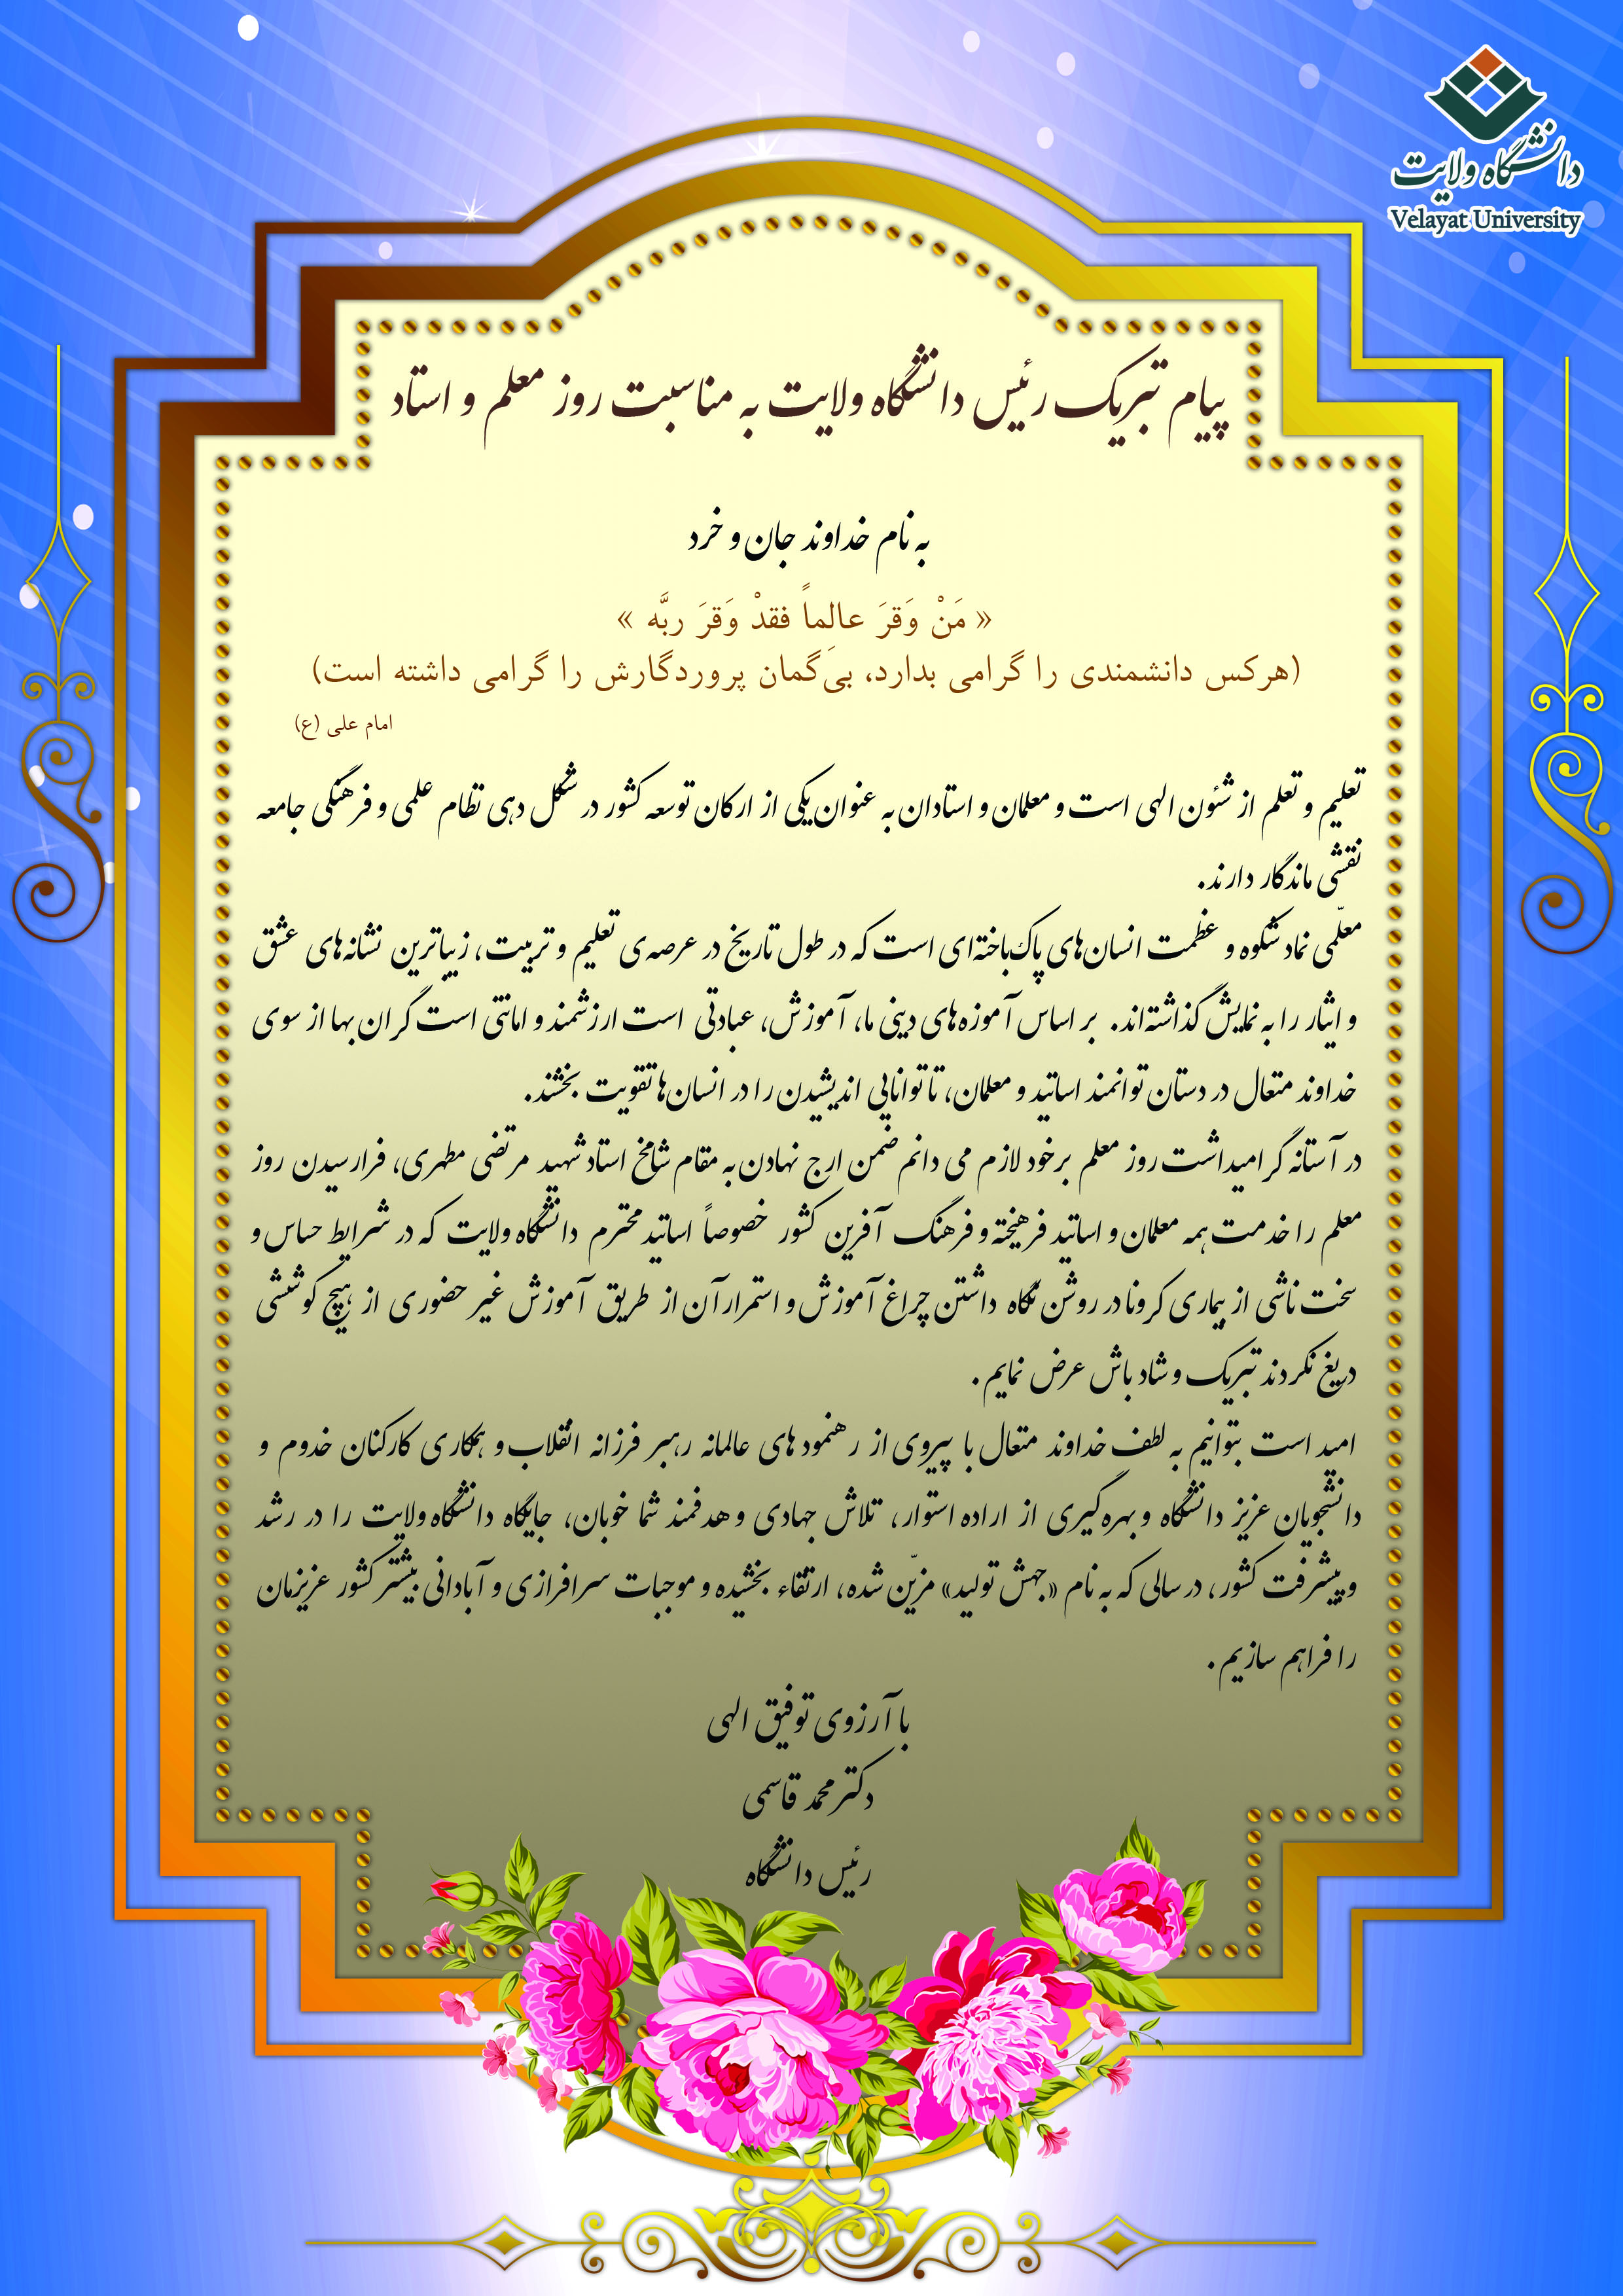 دانشگاه ولایت
Velayat University
پیام تبریک رئیس دانشگاه ولایت به مناسبت روز معلم و استاد
به نام خداوند جان و خرد
« مَنْ وَقرَ عالِماً فقدْ وَقرَ ربَّه »
(هرکس دانشمندی را گرامی بدارد، بی‌گمان پروردگارش را گرامی داشته است)
امام علی (ع)
تعلیم و تعلم از شئون الهی است و معلمان و استادان به عنوان یکی از ارکان توسعه کشور در شکل دهی نظام علمی و فرهنگی جامعه
نقشی ماندگار دارند.
معلّمی نماد شکوه و عظمت انسان‌های پاک‌باخته‌ای است که در طول تاریخ در عرصه‌ی تعلیم و تربیت، زیباترین نشانه‌های عشق
و ایثار را به نمایش گذاشته‌اند. بر اساس آموزه‌های دینی ما، آموزش، عبادتی است ارزشمند و امانتی است گران بها از سوی
خداوند متعال در دستان توانمند اساتید و معلمان، تا توانایی اندیشیدن را در انسان‌ها تقویت بخشند.
در آستانه گرامیداشت روز معلم برخود لازم می دانم ضمن ارج نهادن به مقام شامخ استاد شهید مرتضی مطهری، فرارسیدن روز
معلم را خدمت همه معلمان و اساتید فرهیخته و فرهنگ آفرین کشور خصوصاً اساتید محترم دانشگاه ولایت که در شرایط حساس و
سخت ناشی از بیماری کرونا در روشن نگاه داشتن چراغ آموزش و استمرار آن از طریق آموزش غیر حضوری از هیچ کوششی
دریغ نکردند تبریک و شاد باش عرض نمایم.
امید است بتوانیم به لطف خداوند متعال با پیروی از رهنمودهای عالمانه رهبر فرزانه انقلاب و همکاری کارکنان خدوم و
دانشجویان عزیز دانشگاه و بهره‌گیری از اراده استوار، تلاش جهادی و هدفمند شما خوبان، جایگاه دانشگاه ولایت را در رشد
و پیشرفت کشور، در سالی که به نام «جهش تولید» مزیّن شده، ارتقاء بخشیده و موجبات سرافرازی و آبادانی بیشتر کشور عزیزمان
را فراهم سازیم.
با آرزوی توفیق الهی
دکتر محمد قاسمی
رئیس دانشگاه